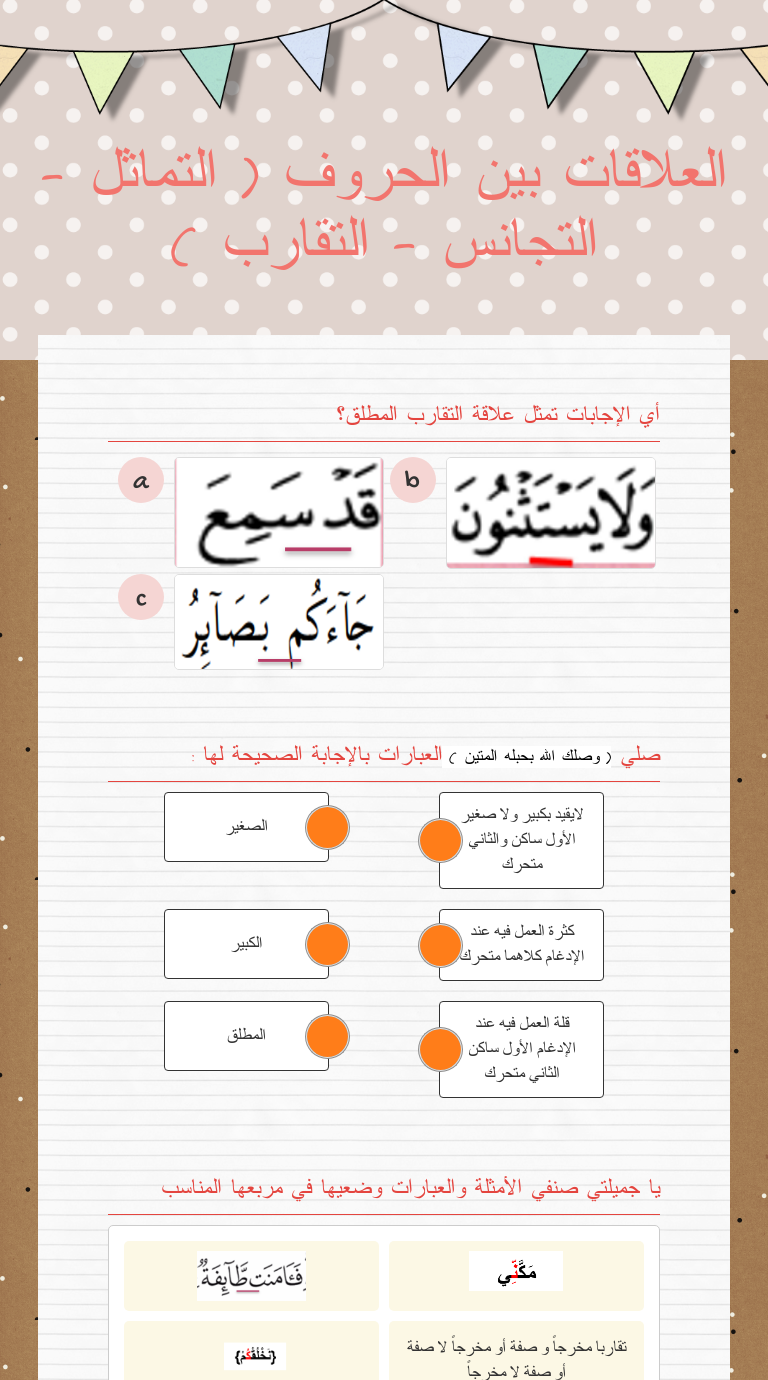 العلاقات بين الحروف ( التماثل -
التجانس - التقارب )
أي الإجابات تمثل علاقة التقارب المطلق؟
a
قَدْ سَمِعَ
b
وَلَا يَسْتَثْنُونَ
c
جَآءَكُم بَصَآئِرُ
صلي ( وصلك الله بحبله المتين ) العبارات بالإجابة الصحيحة لها :
لايقيد بكبير ولا صغير
الأول ساكن والثاني
متحرك
الصغير
كثرة العمل فيه عند
الإدغام كلاهما متحرك
الكبير
قلة العمل فيه عند
الإدغام الأول ساكن
الثاني متحرك
المطلق
يا جميلتي صنفي الأمثلة والعبارات وضعيها في مربعها المناسب
مَكَّنِّي
فَـَٔامَنَت طَّآئِفَةٌ
تقاربا مخرجاً و صفة أو مخرجاً لا صفة
أو صفة لا مخرجاً
{نَخْلُقكُّمْ}